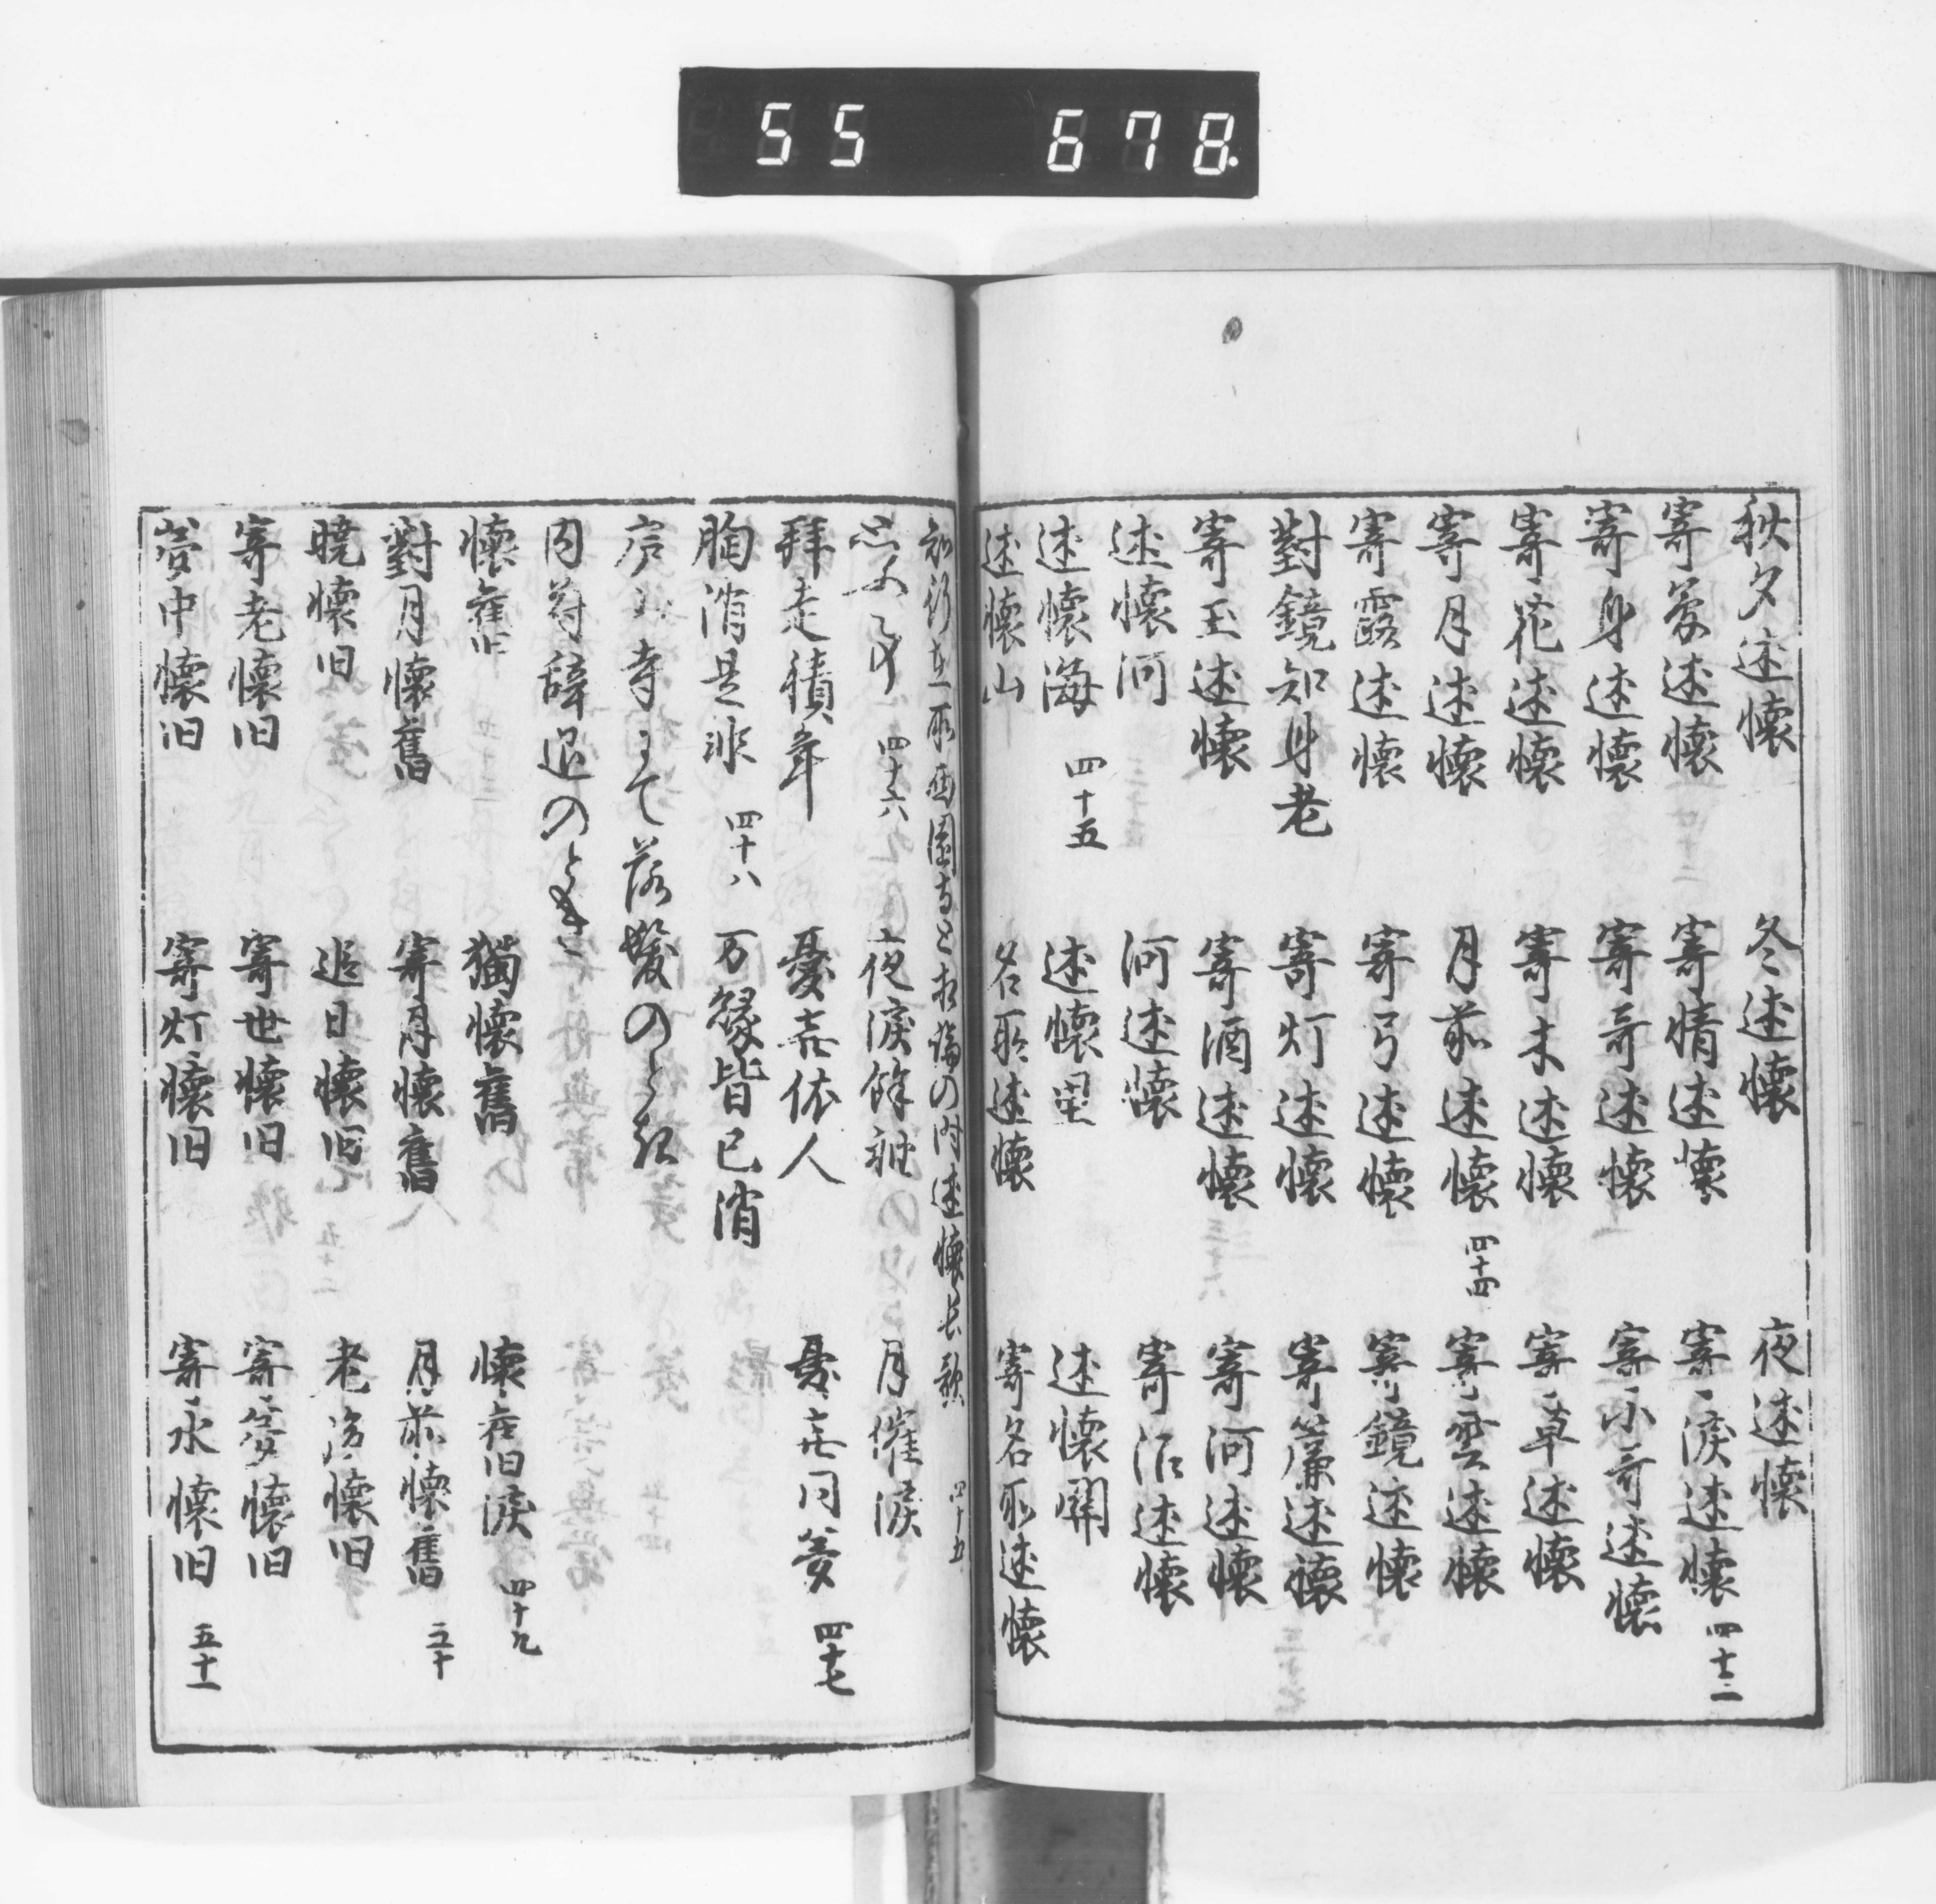 55 678.
秋夕述懐 冬述懐 夜述懐
寄夢述懐 寄情述懐 寄涙述懐 四十二
寄身述懐 寄哥述懐 寄小哥述懐
寄花述懐 寄木述懐 寄草述懐
寄月述懐 月前述懐 四十四 寄雲述懐
寄露述懐 寄弓述懐 寄鏡述懐
對鏡知身老 寄灯述懐 寄簾述懐
寄玉述懐 寄酒述懐 寄河述懐
述懐河 河述懐 述懐
述懐海 四十五 述懐里 述懐関
述懐山 名所述懐 寄名所述懐
西園寺と相論の時述懐長歌 四十五
四十六 夜涙餘袖 月催涙
拜走積年 憂喜依人 憂喜同夢 四十七
胸消是非 四十八 万縁皆已消
寺にて落髪のとき
内 辞退のとき
懐舊 獨懐舊 懐旧涙 四十九
對月懐舊 寄月懐舊 月前懐舊 五十
暁懐旧 追日懐旧 老後懐旧
寄老懐旧 寄世懐旧 寄夢懐旧
夢中懐旧 寄灯懐旧 寄水懐旧 五十一